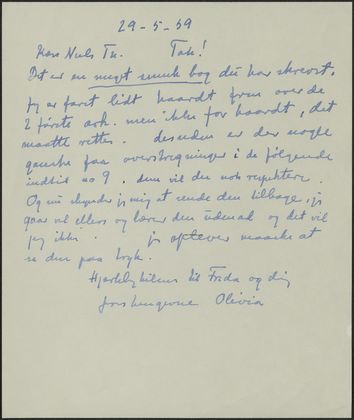 29-5-59
Kære Niels Th. Tak!
Det er en meget smuk bog du har skrevet.
Jeg er faret lidt haardt frem over de
2 første ark. men ikke for haardt, det
maatte rettes. desuden er der nogle
ganske faa overstregninger i de følgende
indtil no 9. dem vil du nok respektere.
Og nu skynder jeg mig at sende den tilbage, jeg
gaar vel ellers og lærer den udenad og det vil
jeg ikke. jeg oplever maaske at
se den paa tryk.
Hjertelig hilsen til Frida og dig
Olivia